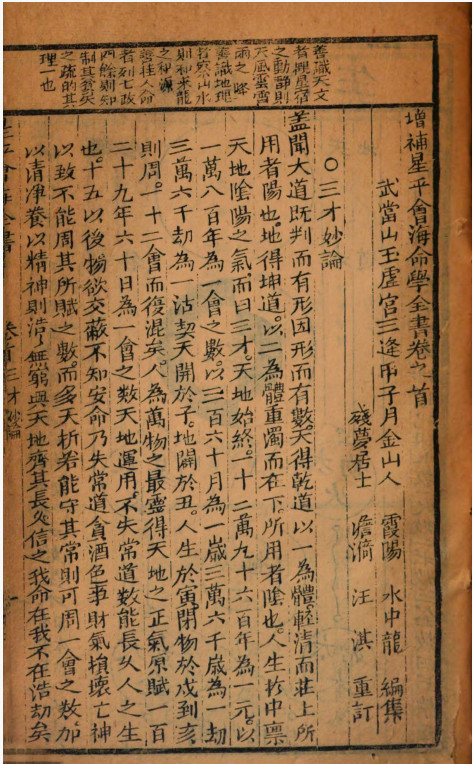 增補星平會海命學全書卷之首
武當山玉虛宮三逢甲子月金山人 霞陽 水中龍 編集
殘夢居士 憺漪 汪淇 重訂
〇三才妙論
蓋聞大道既判而有形因形而有數天得乾道以一為體輕清而在上所
用者陽也地得坤道以二為體重濁而在下所用者陰也人生於中稟
天地陰陽之氣而曰三才天地始終一十二萬九千六百年為一元以
一萬八百年為一會之數以三百六十月為一歲三萬六千歲為一劫
三萬六千劫為一沽契天開於子地闢於丑人生於寅閉物於戌到亥
則周一十二會而復混矣人為萬物之最靈得天地之正氣原賦一百
二十九年六十日為一會之数天地運用不失常道数能長久人之生
也十五以後物欲交蔽不知安命乃失常道貪酒色事財氣損壞亡神
以致不能周其所賦之數而多夭折若能守其常則可周一會之数加
以清净養以精神則浩無窮與天地齊其長久信之我命在我不在浩劫矣
善識天文
者裡星宿
之動靜則
天風雲雷
雨之
善識地理
者察山水
則知來龍
之
善推人命
者列七政
四餘則知
制其
之疏的其
理一也
卷首 三才妙論